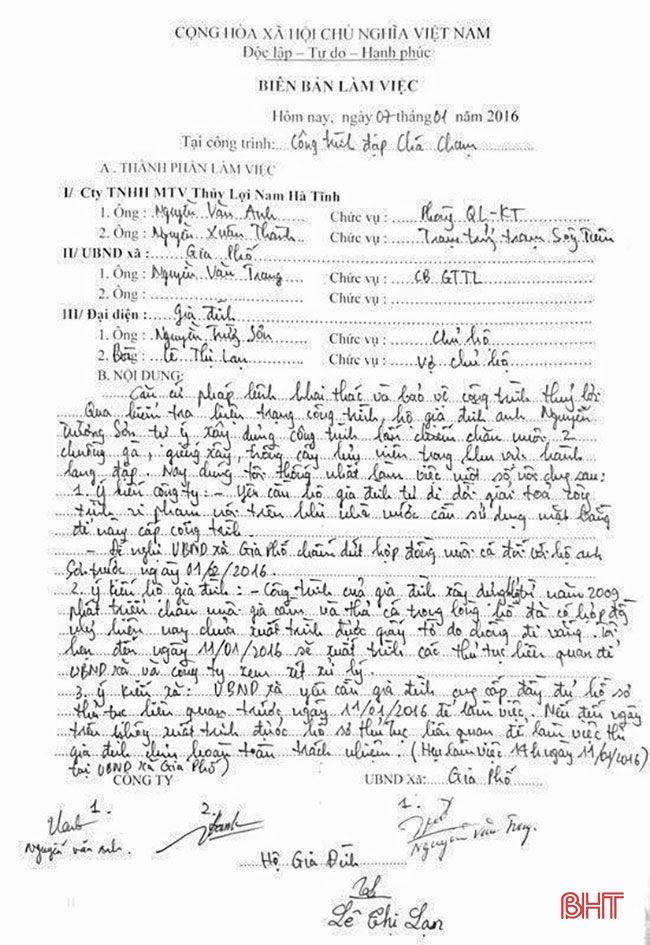 CỘNG HÒA XÃ HỘI CHỦ NGHĨA VIỆT NAM
Độc lập – Tự do – Hạnh phúc
BIÊN BẢN LÀM VIỆC
Hôm nay, ngày 07 tháng 01 năm 2016
Tại công trình: Công trình đập Chà Chạm
A. THÀNH PHẦN LÀM VIỆC
I/ Cty TNHH MTV Thủy Lợi Nam Hà Tĩnh
1. Ông: Nguyễn Văn Anh Chức vụ: Phòng QL-KT
2. Ông: Nguyễn Xuân Thành Chức vụ: Trạm trưởng trạm Sông Tiêm
II/ UBND xã: Gia Phố
1. Ông: Nguyễn Văn Trang Chức vụ: CB GTTL
2. Ông: Chức vụ:
III/ Đại diện: Gia đình
1. Ông: Nguyễn Trường Sơn Chức vụ: Chủ hộ
2. Bà: Lê Thị Lan Chức vụ: Vợ chủ hộ
B. NỘI DUNG:
Căn cứ pháp lệnh khai thác và bảo vệ công trình thuỷ lợi
Qua kiểm tra hiện trạng công trình, hộ gia đình anh Nguyễn
Trường Sơn tự ý xây dựng công trình lấn chiếm chăn nuôi, 2
chuồng gà, giếng xây, trồng cây lưu niên trong khu vực hành
lang đập. Nay chúng tôi thống nhất làm việc một số nội dung sau:
1. Ý kiến công ty: - Yêu cầu hộ gia đình tự di dời giải toả công
trình vi phạm nói trên khi nhà nước cần sử dụng mặt bằng
để nâng cấp công trình.
- Đề nghị UBND xã Gia Phố chấm dứt hợp đồng nuôi cá đối với hộ anh
Sơn trước ngày 01/2/2016.
2. Ý kiến hộ gia đình: - Công trình của gia đình xây dựng từ năm 2009
phát triển chăn nuôi gia cầm và thả cá trong lòng hồ đã có hợp đồng
nhưng hiện nay chưa xuất trình được giấy tờ do chồng đi vắng. Tôi
hẹn đến ngày 11/01/2016 sẽ xuất trình các thủ tục liên quan để
UBND xã và công ty xem xét xử lý.
3. Ý kiến xã: UBND xã yêu cầu gia đình cung cấp đầy đủ hồ sơ
thủ tục liên quan trước ngày 11/01/2016 để làm việc. Nếu đến ngày
trên không xuất trình được hồ sơ thủ tục liên quan để làm việc thì
gia đình chịu hoàn toàn trách nhiệm. (Hẹn làm việc 14h ngày 11/01/2016)
tại UBND xã Gia Phố)
CÔNG TY UBND Xã: Gia Phố
1. 2. 1.
Nguyễn Văn Anh. Nguyễn Văn Trang.
Hộ Gia Đình
Lê Thị Lan
BHT